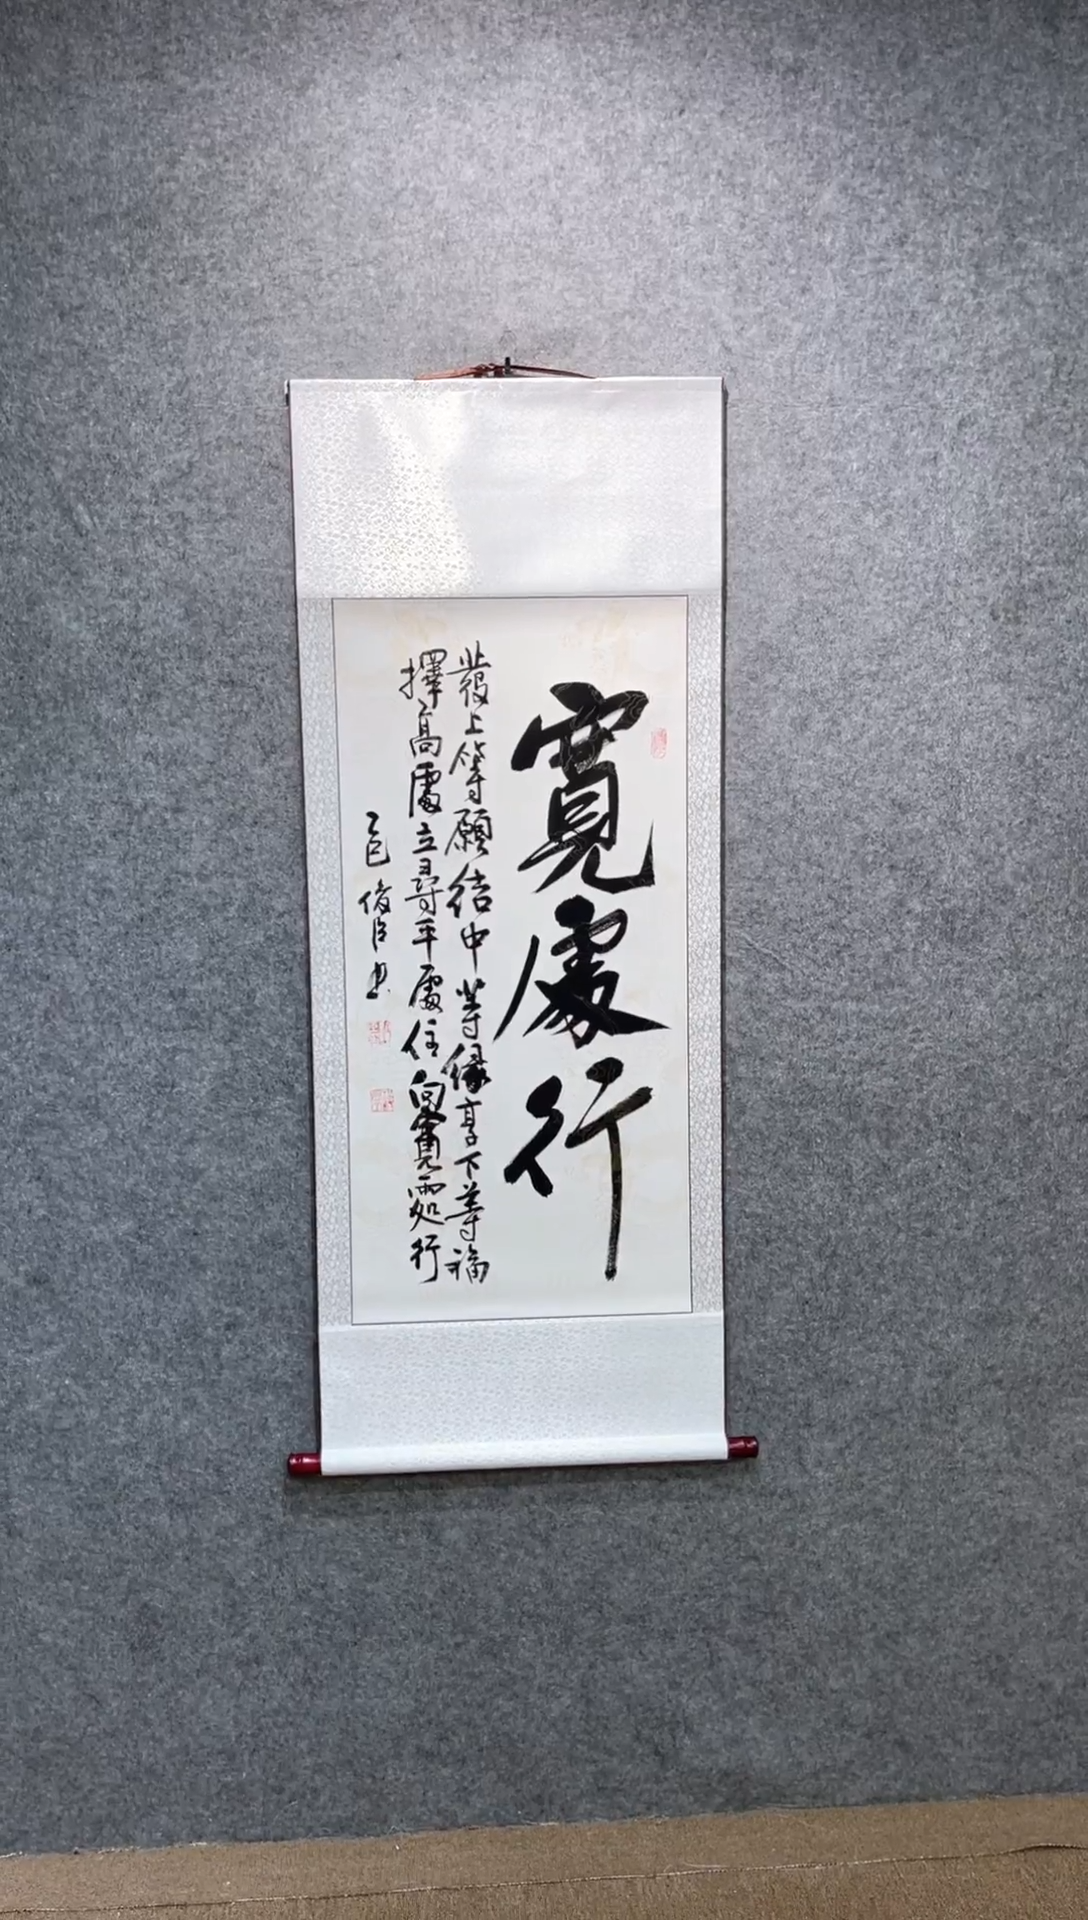 寬處行
發上等願結中等緣享下等福
擇高處立尋平處住向寬處行
乙巳俊臣書